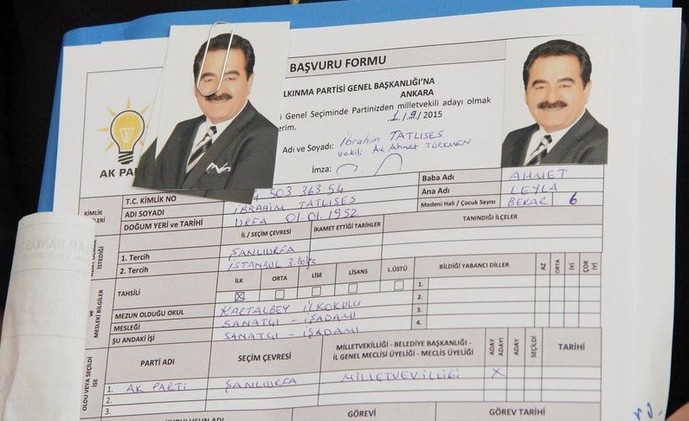 BAŞVURU FORMU
AK PAR
LKINMA PARTİSİ GENEL BAŞKANLIĞI'NA
ANKARA
i Genel Seçiminde Partinizden milletvekili adayı olmak
erim.
1/2/2015
Adı ve Soyadı: İbrahim TATLISES
vekili Av. Ahmet
İmza:
T.C. KİMLİK NO 503 363 54
Baba Adı AHMET
KİMLİK
ADI SOYADI İBRAHİM TATLISES
Ana Adı LEYLA
DOĞUM YERİ VE TARİHİ URFA 01.01.1952
Medeni Hali / Çocuk Sayısı BEKAR 6
İSTEDİĞİ
İL / SEÇİM ÇEVRESİ
İKAMET ETTİĞİ TARİHLER
TANINDIĞI İLÇELER
1. Tercih ŞANLIURFA
2. Tercih İSTANBUL 3. Bölge
MESLEKİ BİLGİLER
TAHSİLİ
İLK
ORTA
LİSE
LİSANS
L.ÜSTÜ
BİLDİĞİ YABANCI DİLLER
AZ
ORTA
İYİ
ÇOK İYİ
1.
2.
3.
4.
MEZUN OLDUĞU OKUL KARTALBEY - İLKOKULU
MESLEĞİ SANATÇI - İŞADAMI
ŞU ANDAKİ İŞİ SANATÇI - İŞADAMI
OLDU VEYA SEÇİLDİ İSE
PARTİ ADI
SEÇİM ÇEVRESİ
MİLLETVEKİLLİĞİ - BELEDİYE BAŞKANLIĞI -
İL GENEL MECLİSİ ÜYELİĞİ - MECLİS ÜYELİĞİ
ADAY ADAYI
ADAY
SEÇİLDİ
TARİHİ
1. AK PARTİ ŞANLIURFA MİLLETVEKİLLİĞİ X
2.
3.
KURULUŞUN ADI
GÖREVİ
GÖREV TARİHİ